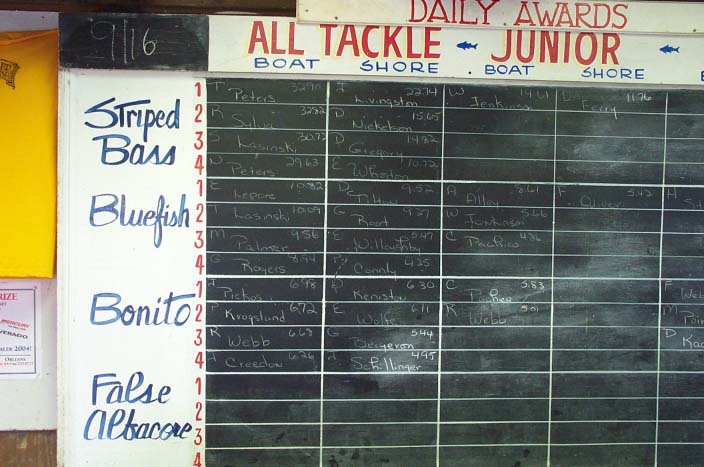 DAILY AWARDS
9/16
ALL TACKLE JUNIOR
BOAT SHORE BOAT SHORE B
Striped Bass
1 T Peters 32.90 Livingston 22.74 W Jenkins 14.61 Ferry 11.76
2 R Sylvia 32.82 D Nickelson 15.65
3 S Kasinski 30.72 D Gregory 14.82
4 N Peters 29.63 E Wheaton 10.72
Bluefish
1 E Lepore 10.82 9.52 A Alley 8.61 Oliver 5.42 H
2 T Kasinski 10.09 G Root 9.27 W 5.66
3 M Palmer 9.56 E Willoughby 5.47 C Pacheco
4 G Rogers 8.94 Connly 4.25
Bonito
1 6.98 Keniston 6.30 C Pacheco 5.83 F
2 P Krogslund 6.72 E Wolfe 6.11 K Webb 5.01 M
3 K Webb 6.68 G Bergeron 5.44 D
4 H Creedon 6.26 Schillinger 4.95
False Albacore
1
2
3
4
RIZE
MERCURY
VERADO
2004!